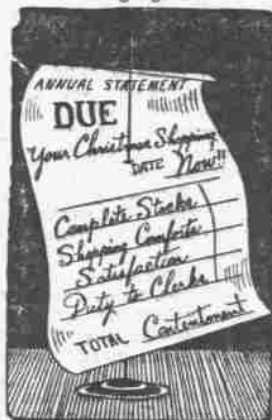 ANNUAL STATEMENT
DUE
Your Christmas Shopping
DATE Now!!
Complete Stocks
Shopping Comforts
Satisfaction
Duty to Clerks
TOTAL Contentment